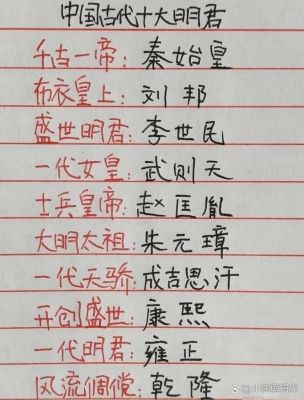 中国古代十大明君
千古一帝：秦始皇
布衣皇上：刘邦
盛世明君：李世民
一代女皇：武则天
士兵皇帝：赵匡胤
大明太祖：朱元璋
一代天骄：成吉思汗
开创盛世：康熙
一代明君：雍正
风流倜傥：乾隆